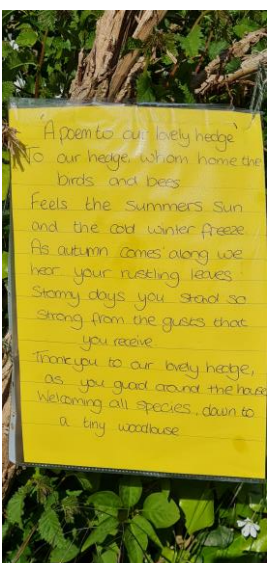 'A poem to our lovely hedge'
To our hedge, whom home the
birds and bees
Feels the summers sun
and the cold winter freeze
As autumn comes along we
hear your rustling leaves
Stormy days you stand so
strong from the gusts that
you receive
Thank you to our lovely hedge,
as you guard around the house
Welcoming all species, down to
a tiny woodlouse